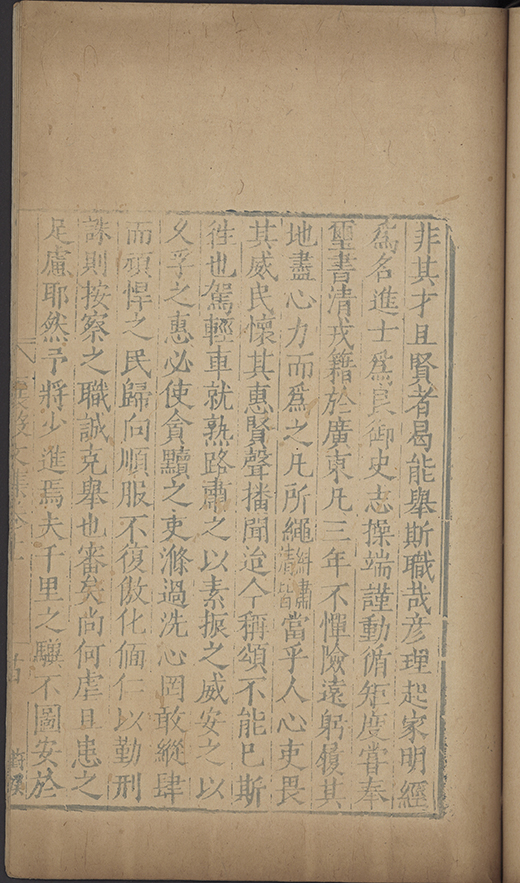 非其才且賢者曷能舉斯職哉彦理起家明經
爲名進士爲良御史志操端謹動循矩度嘗奉
璽書清戎籍於廣東凡三年不憚險遠躬履其
地盡心力而爲之凡所繩糾清肅皆當乎人心吏畏
其威民懷其惠賢聲播聞迨今稱頌不能已斯
徃也駕輕車就熟路肅之以素振之威安之以
久孚之惠必使貪黷之吏滌過洗心罔敢縱肆
而頑悍之民歸向順服不復傲化偭仁以勤刑
誅則按察之職誠克舉也審矣尚何虐且患之
足慮耶然予將少進焉夫千里之驥不圖安於
文集卷